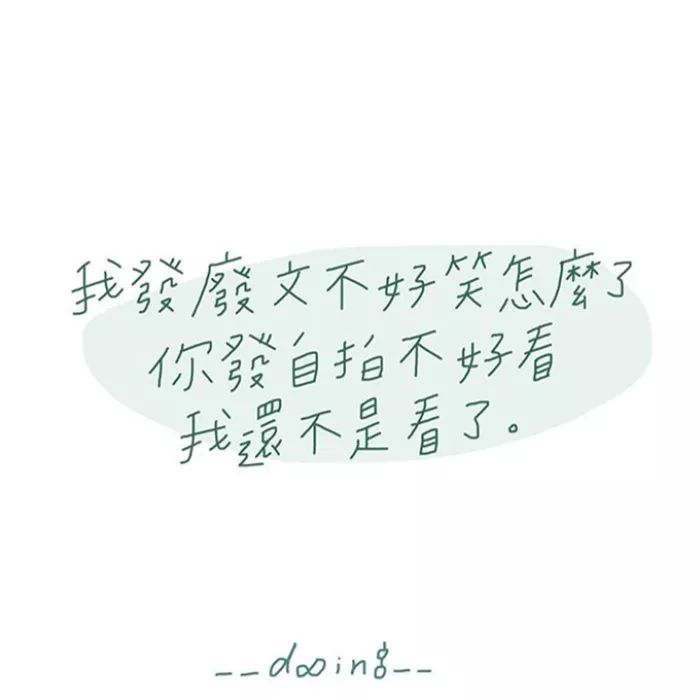 我發廢文不好笑怎麼了
你發自拍不好看
我還不是看了。
__dooing__